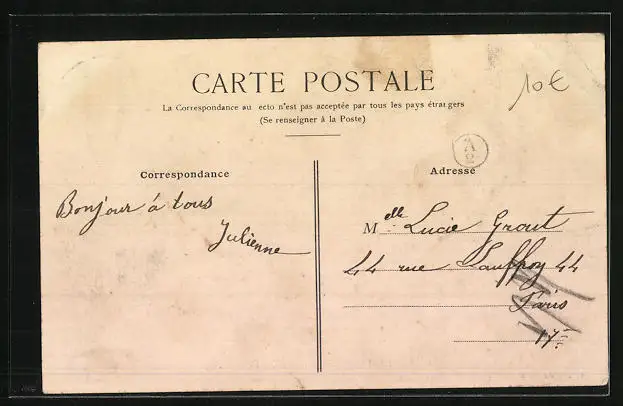 CARTE POSTALE
La Correspondance au ecto n'est pas acceptée par tous les pays étrangers
(Se renseigner à la Poste)
10€
A
2
Correspondance
Adresse
Bonjour à tous
Julienne
Melle Lucie Grout
44 rue Lauffroy 44
Paris
17e